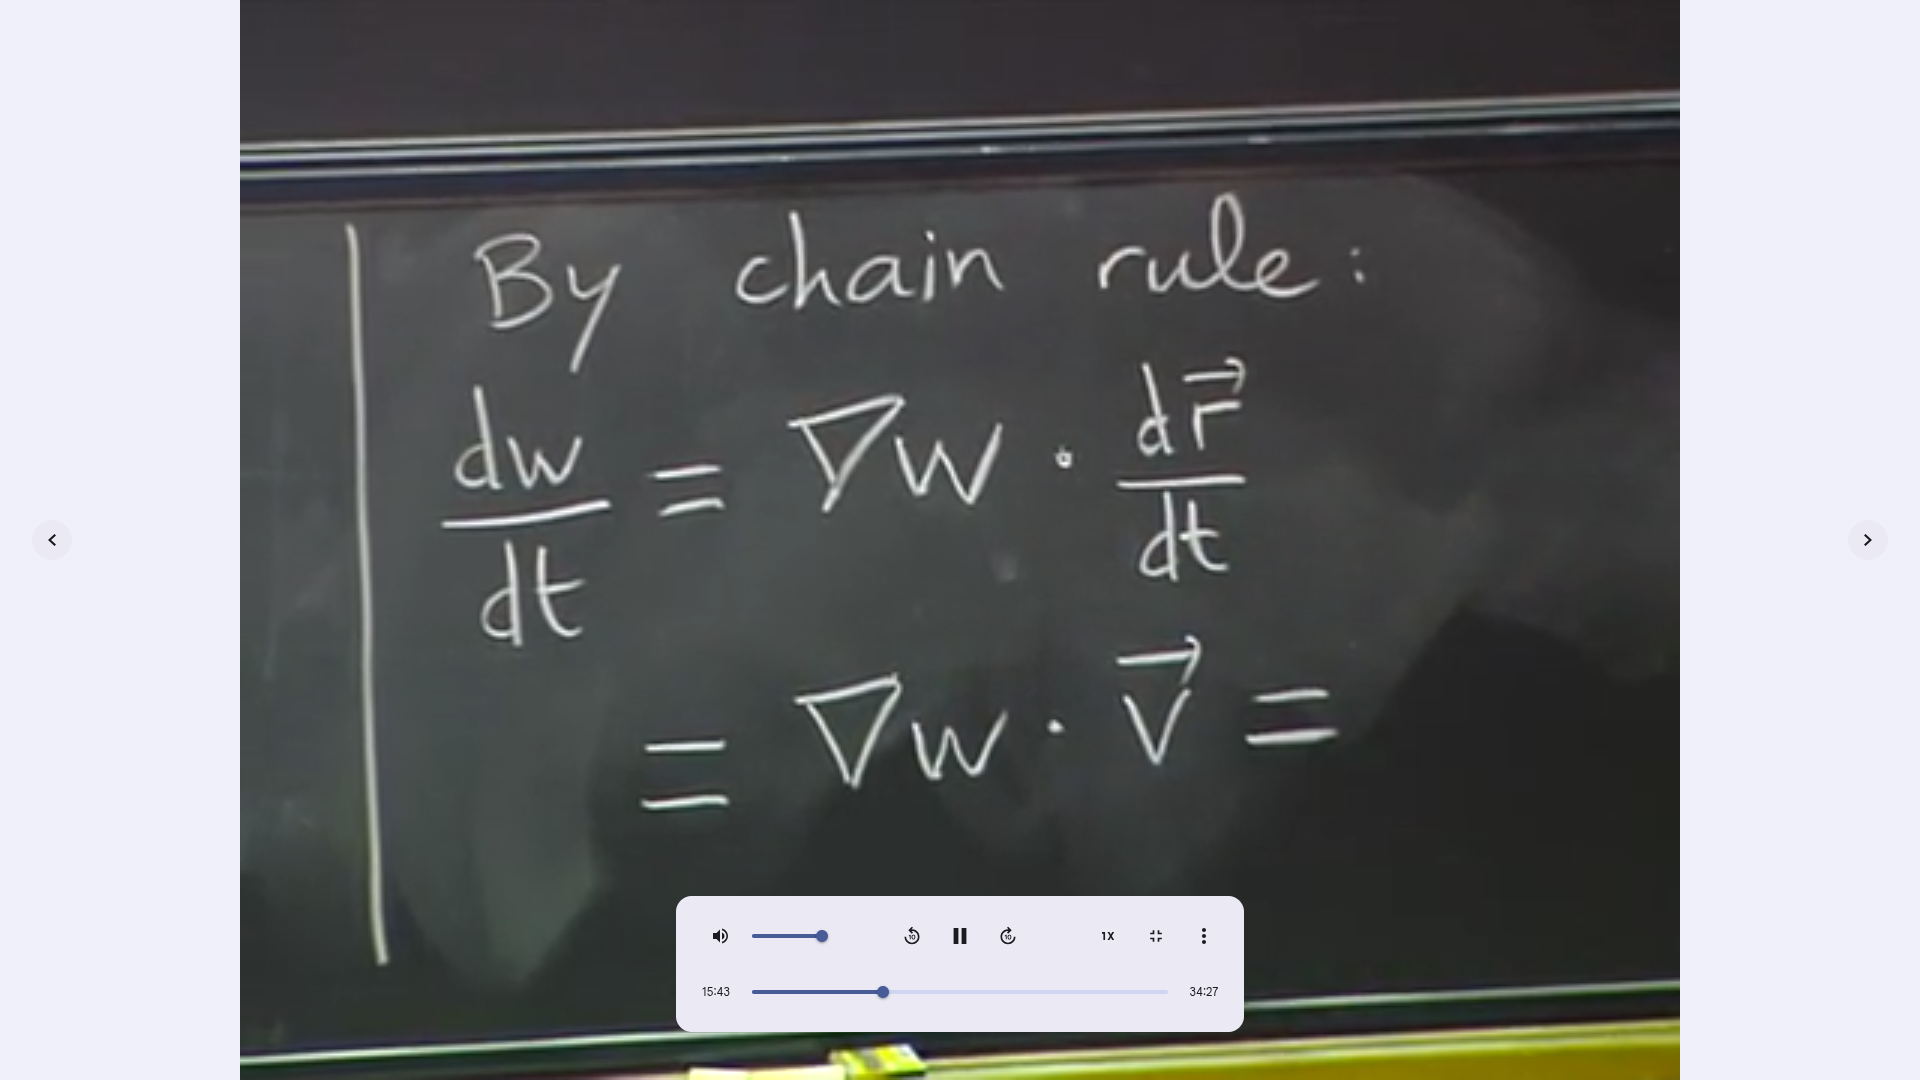 By chain rule:
dw/dt = ∇w · dr⃗/dt
= ∇w · v⃗ =
10
10
1X
15:43
34:27